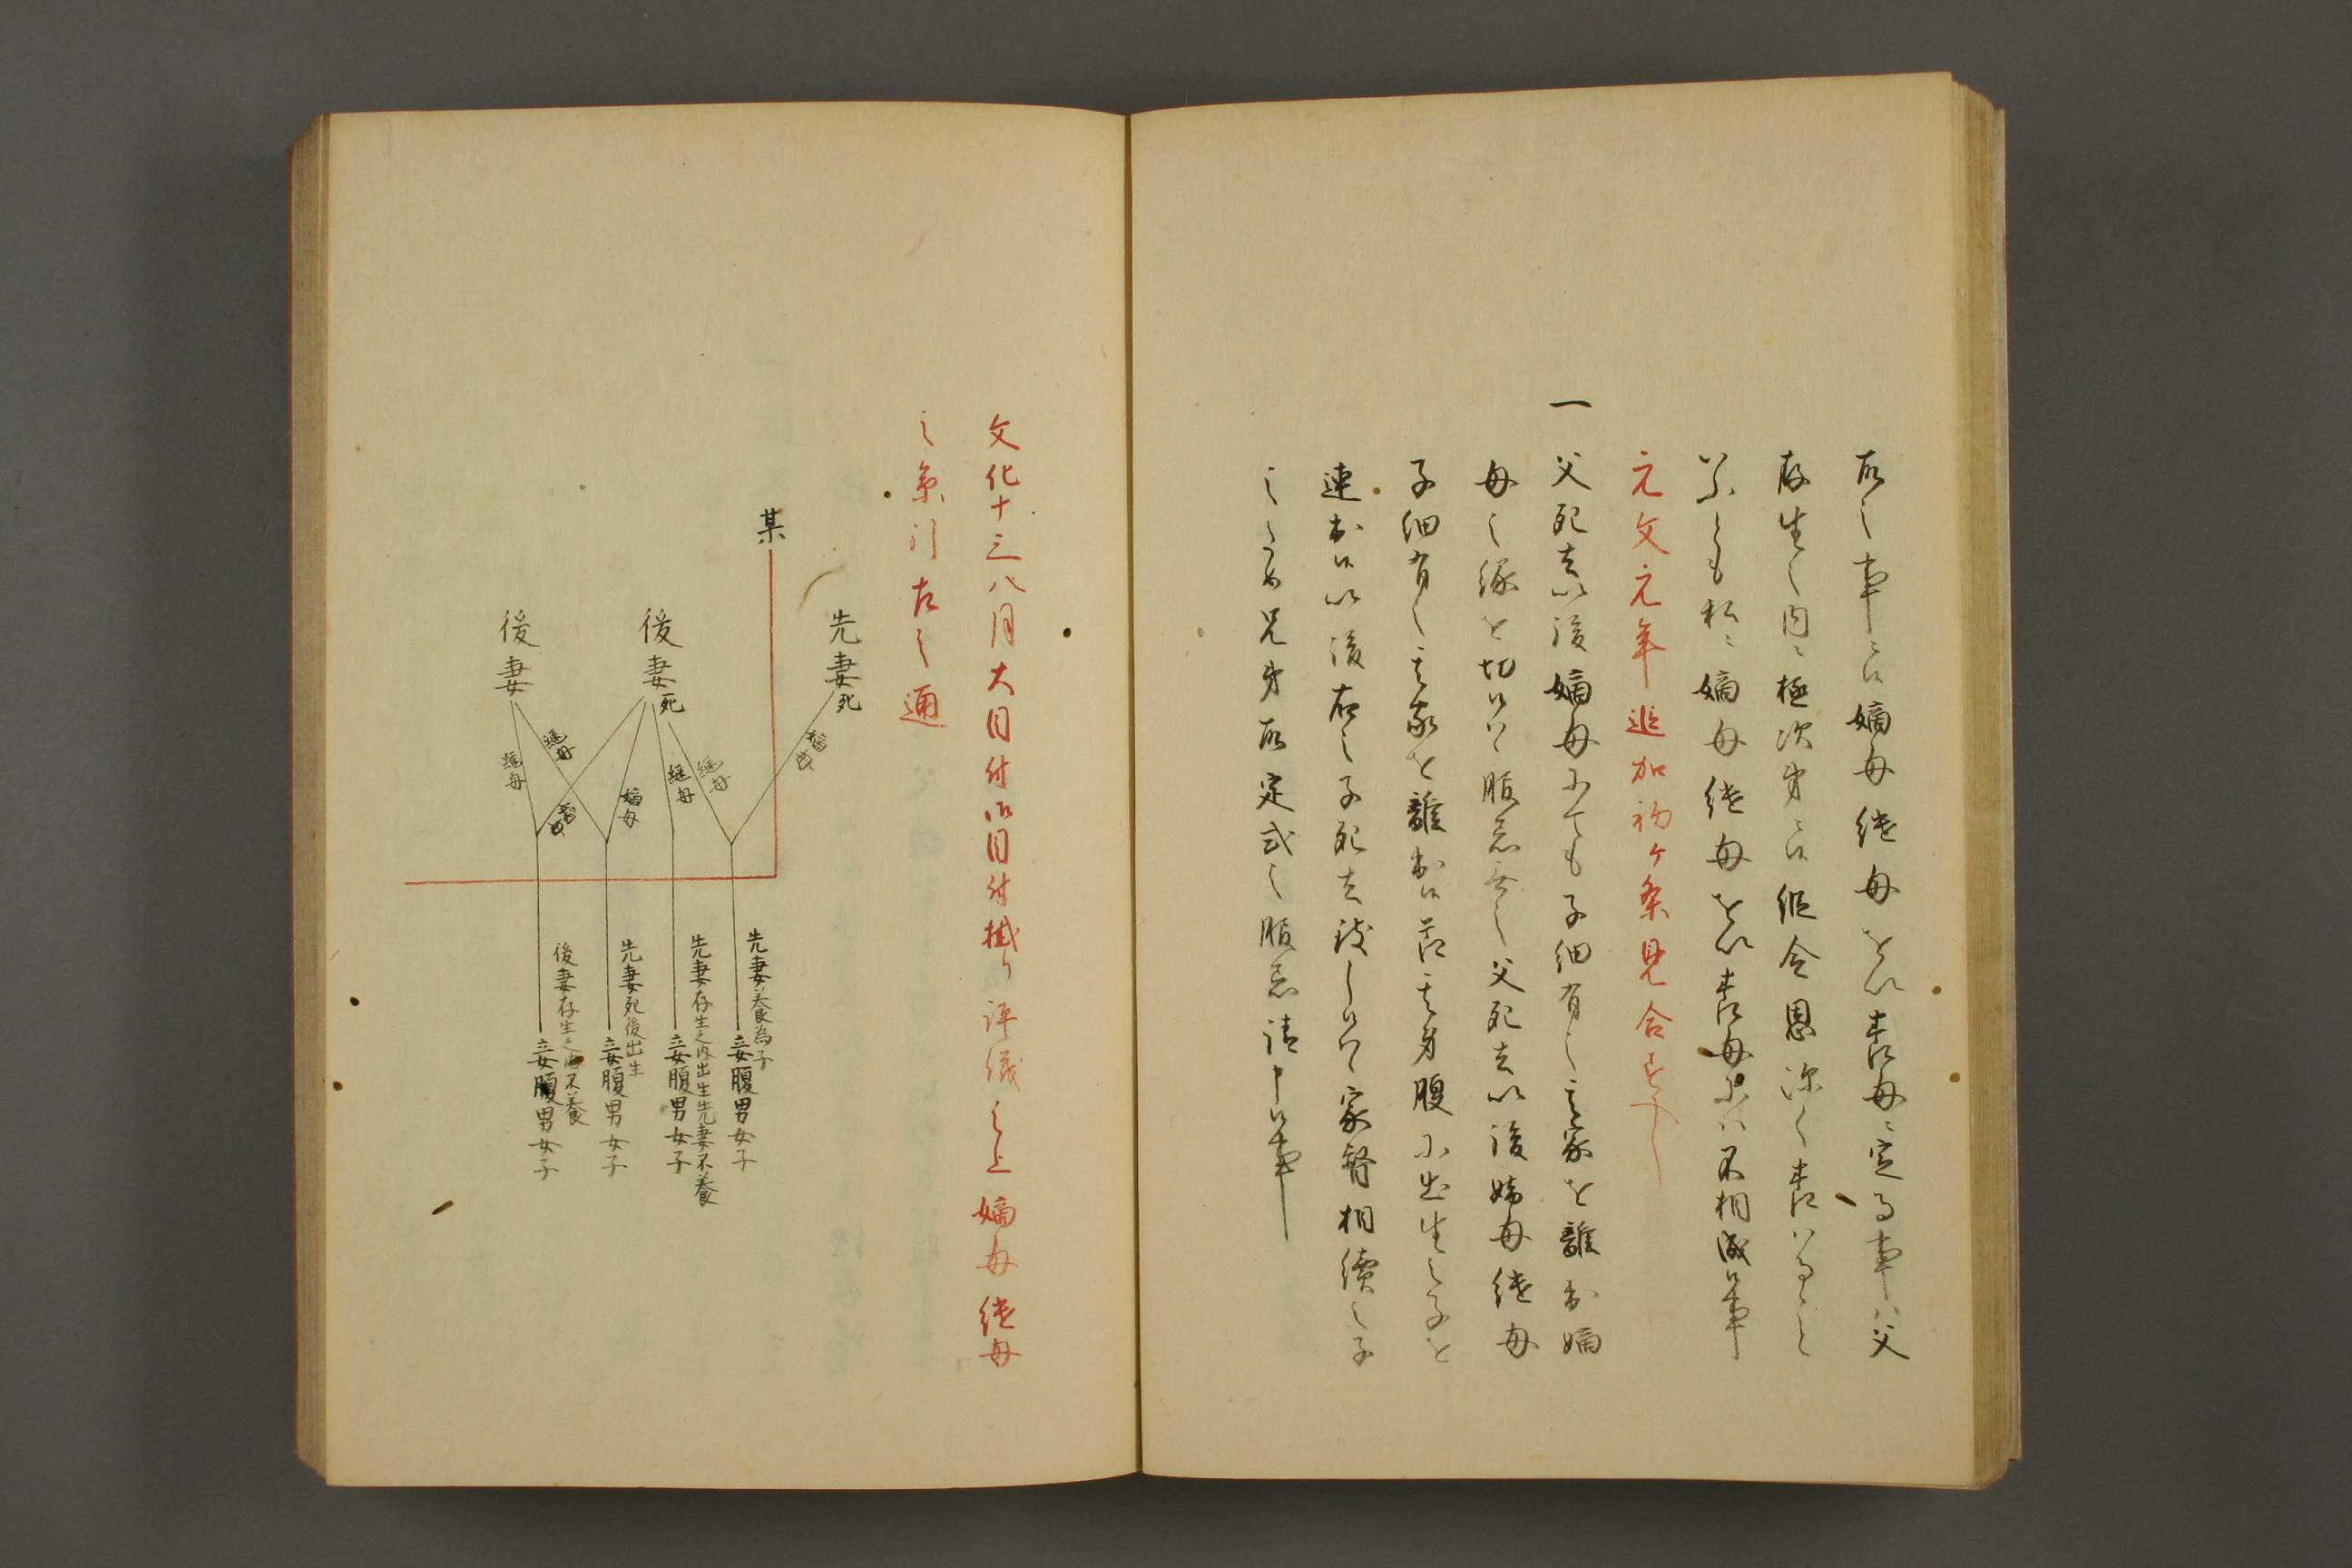 故之事ニ候嫡母継母を以養母ニ定る事ハ父
存生之内ニ極次第ニ候縦令恩深く養ハるゝと
いふとも私ニ嫡母継母を以養母ニハ不相成候事
元文元年追加初ヶ条見合すへし
一父死去以後嫡母ニても子細有之其家を離出嫡
母之縁を切候ハゝ服忌無之父死去以後嫡母継母
子細有之其家を離出候節其身腹ニ出生之子を
連出候以後右之子死去致し候ハゝ家督相續之子
之ため兄弟故定式之服忌請申候事
文化十三八月大目付御目付掛り評儀之上嫡母継母
之系引左之通
某
先妻死
後妻死
後妻
嫡母
継母
継母
嫡母
嫡母
継母
継母
先妻養為子
妾腹男女子
先妻存生之内出生先妻不養
妾腹男女子
先妻死後出生
妾腹男女子
後妻存生之内不養
妾腹男女子